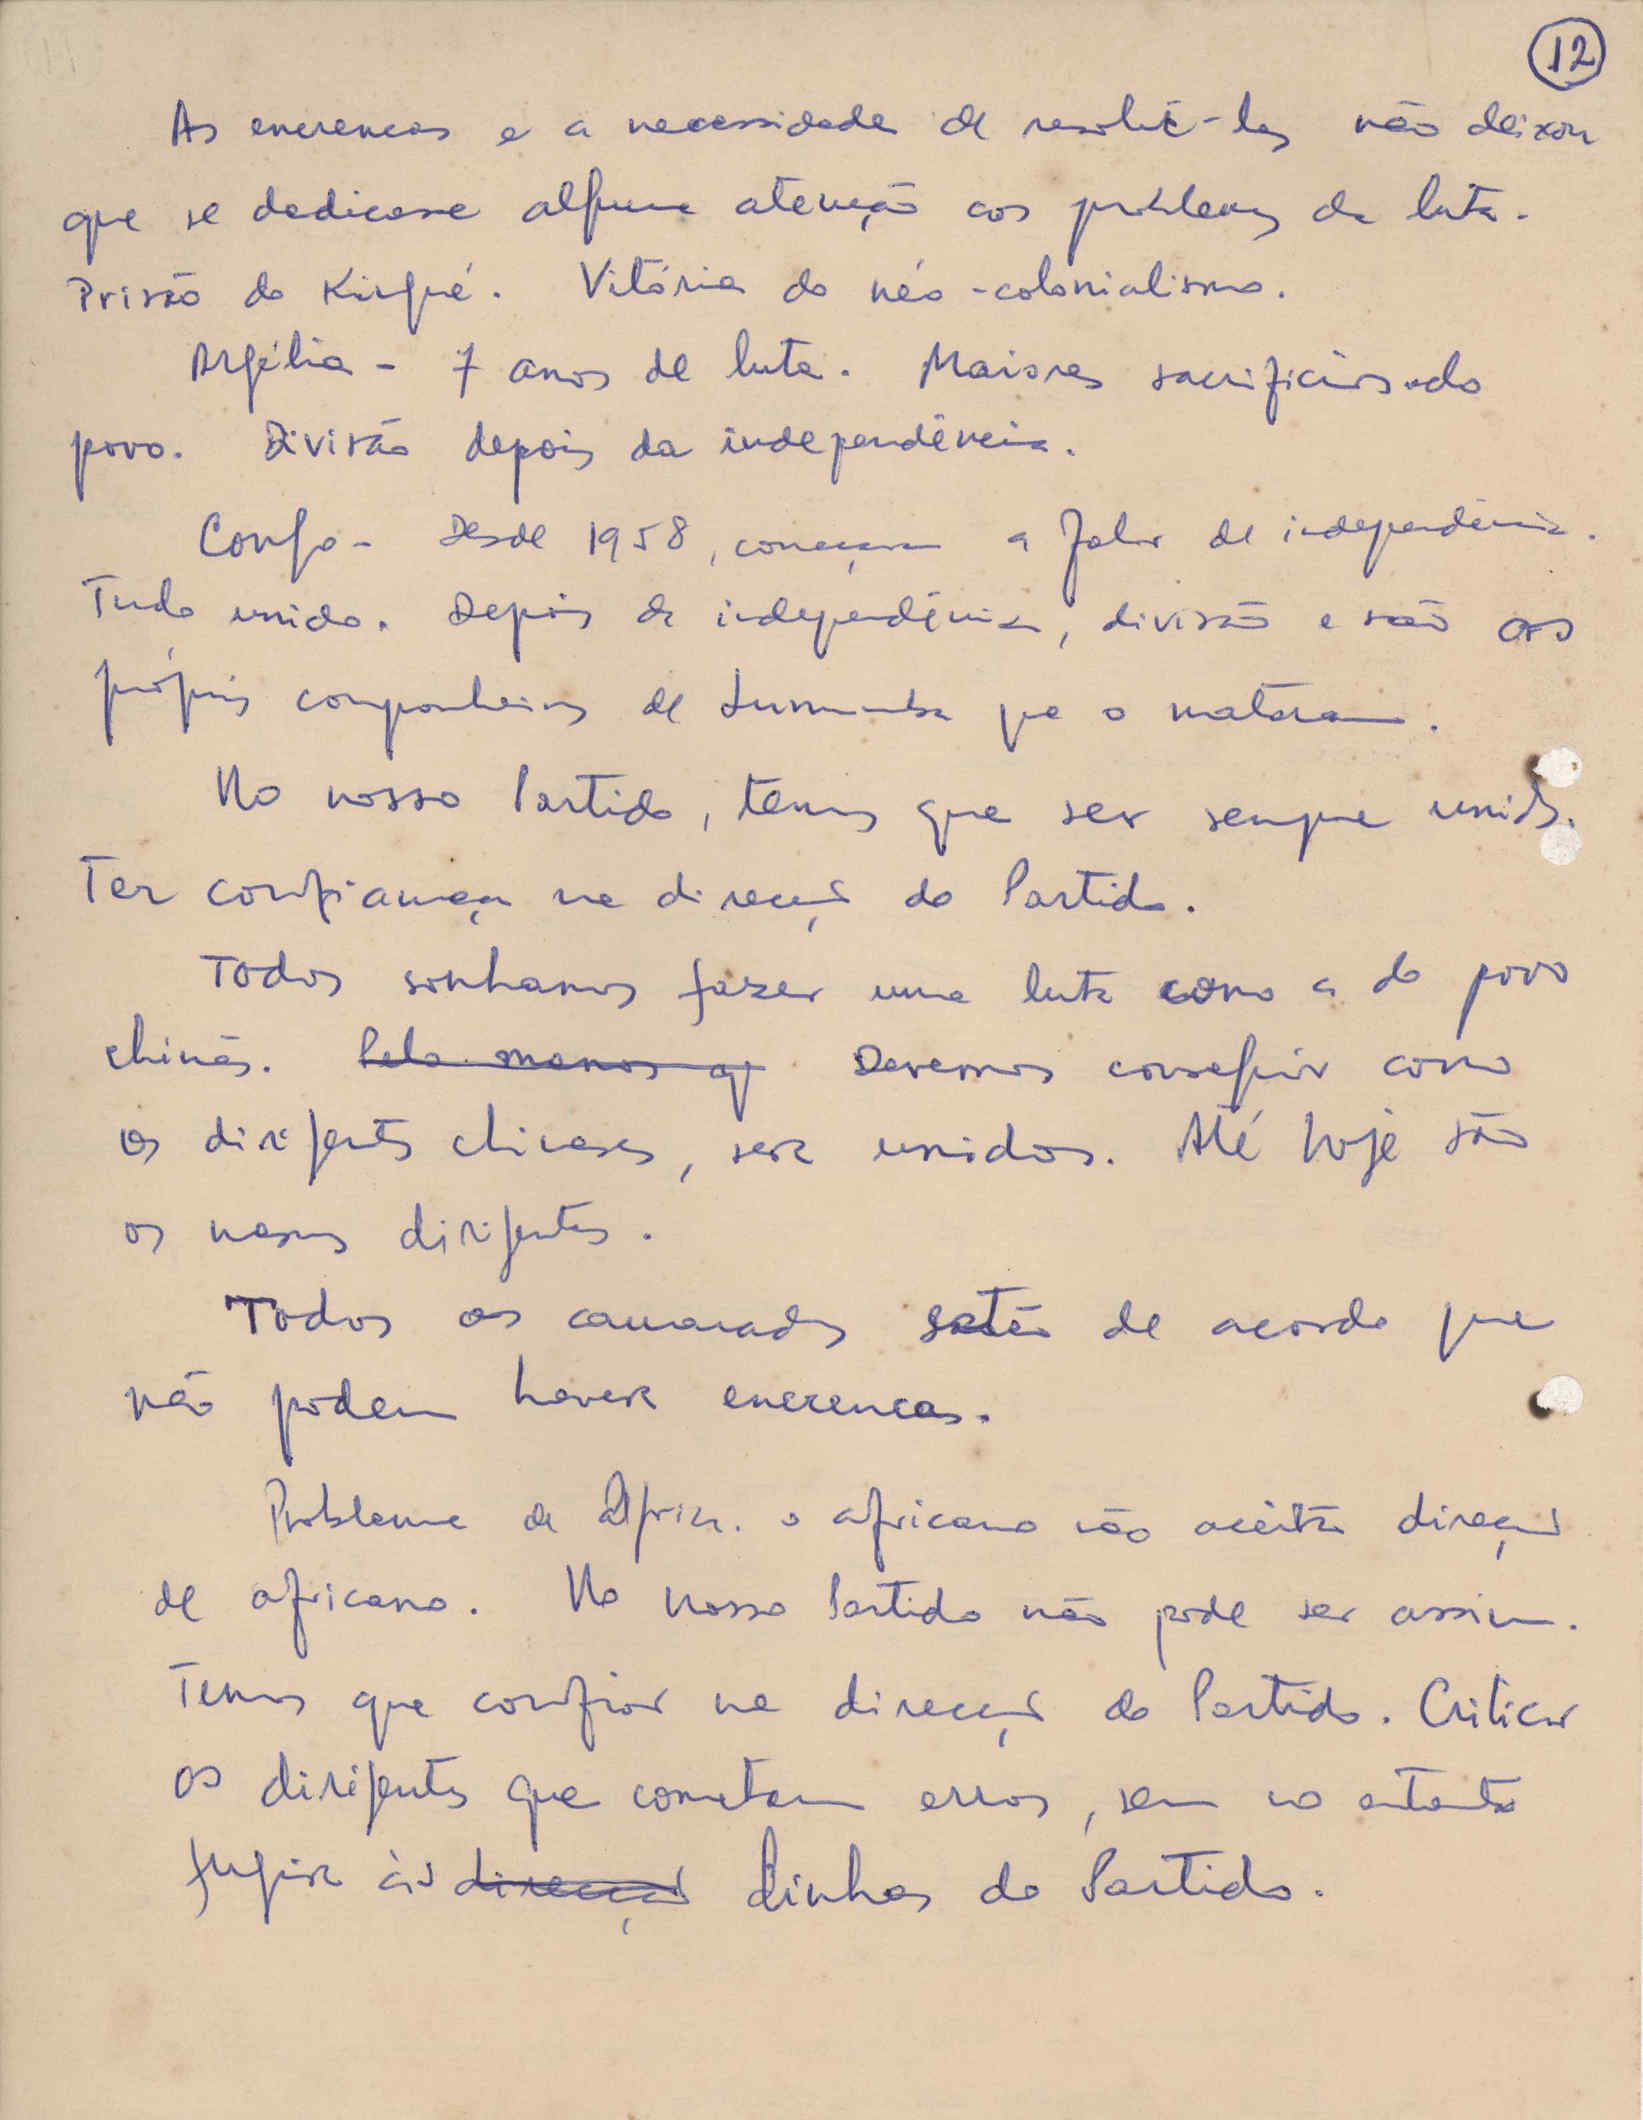 12
As encrencas e a necessidade de resolvê-las não deixou
que se dedicasse alguma atenção aos problemas da luta.
Prisão do Vitória do néo-colonialismo.
Argélia - 7 anos de luta. Maiores sacrifícios do
povo. Divisão depois da independência.
Congo - Desde 1958, começam a falar de independência.
Tudo unido. Depois da independência, divisão e são os
próprios companheiros de Lumumba que o mataram.
No nosso Partido, temos que ser sempre unidos.
Ter confiança na direcção do Partido.
Todos sonhamos fazer uma luta como a do povo
chinês. Pelo menos q Devemos conseguir como
os dirigentes chineses, ser unidos. Até hoje são
os mesmos dirigentes.
Todos os camaradas estão de acordo que
não podem haver encrencas.
Problema da Africa. o africano não aceita direcção
de africano. No nosso Partido não pode ser assim.
Temos que confiar na direcção do Partido. Criticar
os dirigentes que cometam erros, sem no entanto
fugir às direcção linhas do Partido.